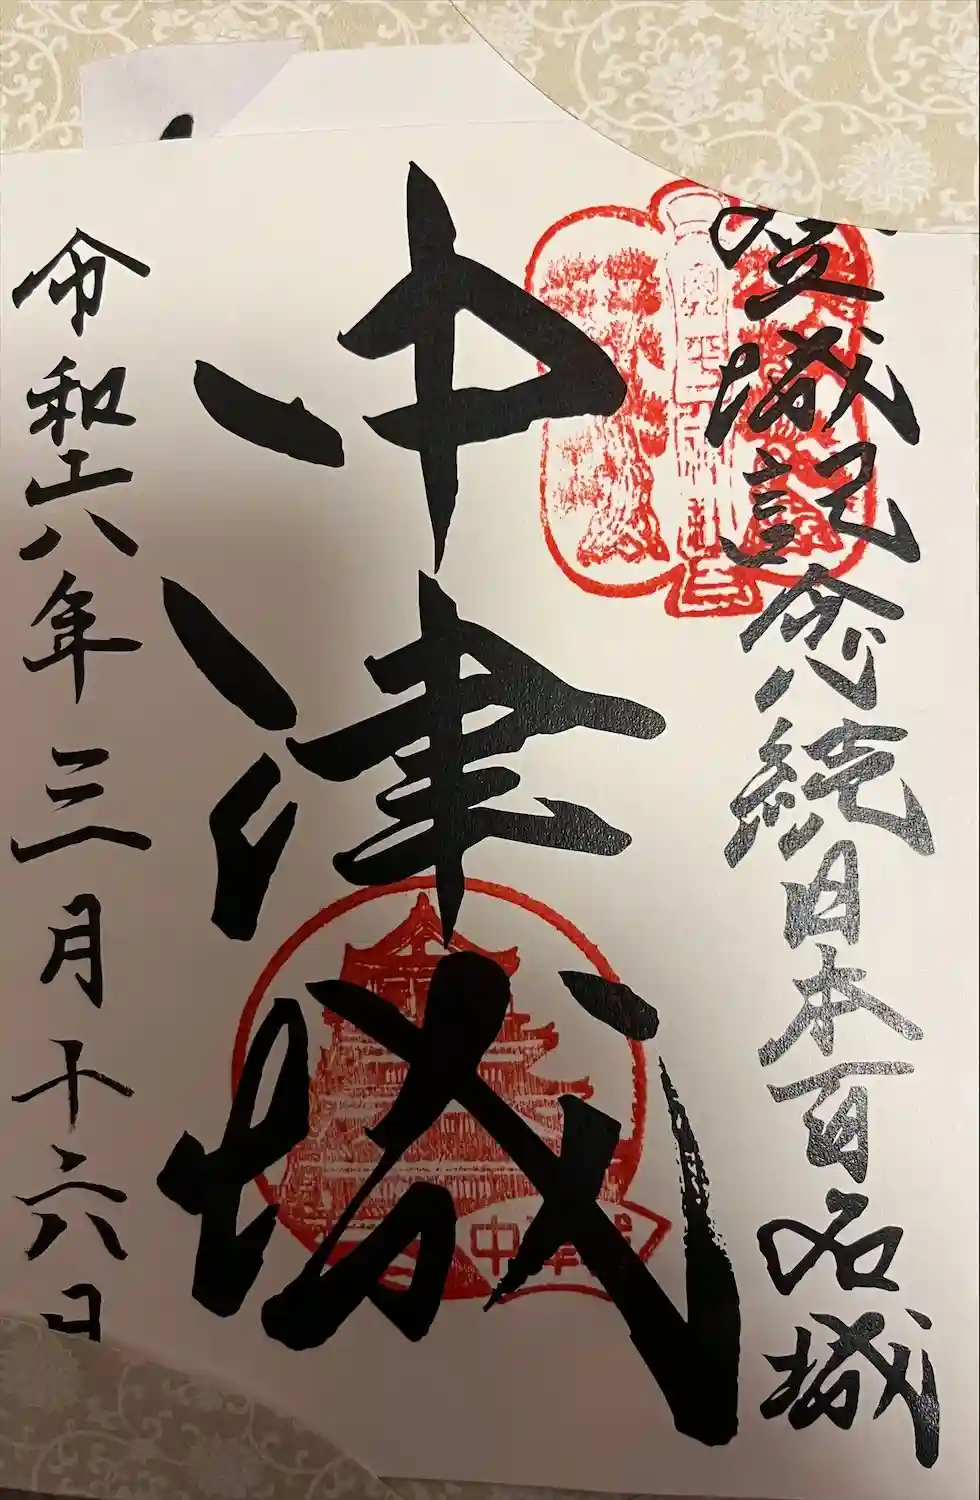 登城記念 続日本百名城
中津城
令和六年三月十六日
中津城